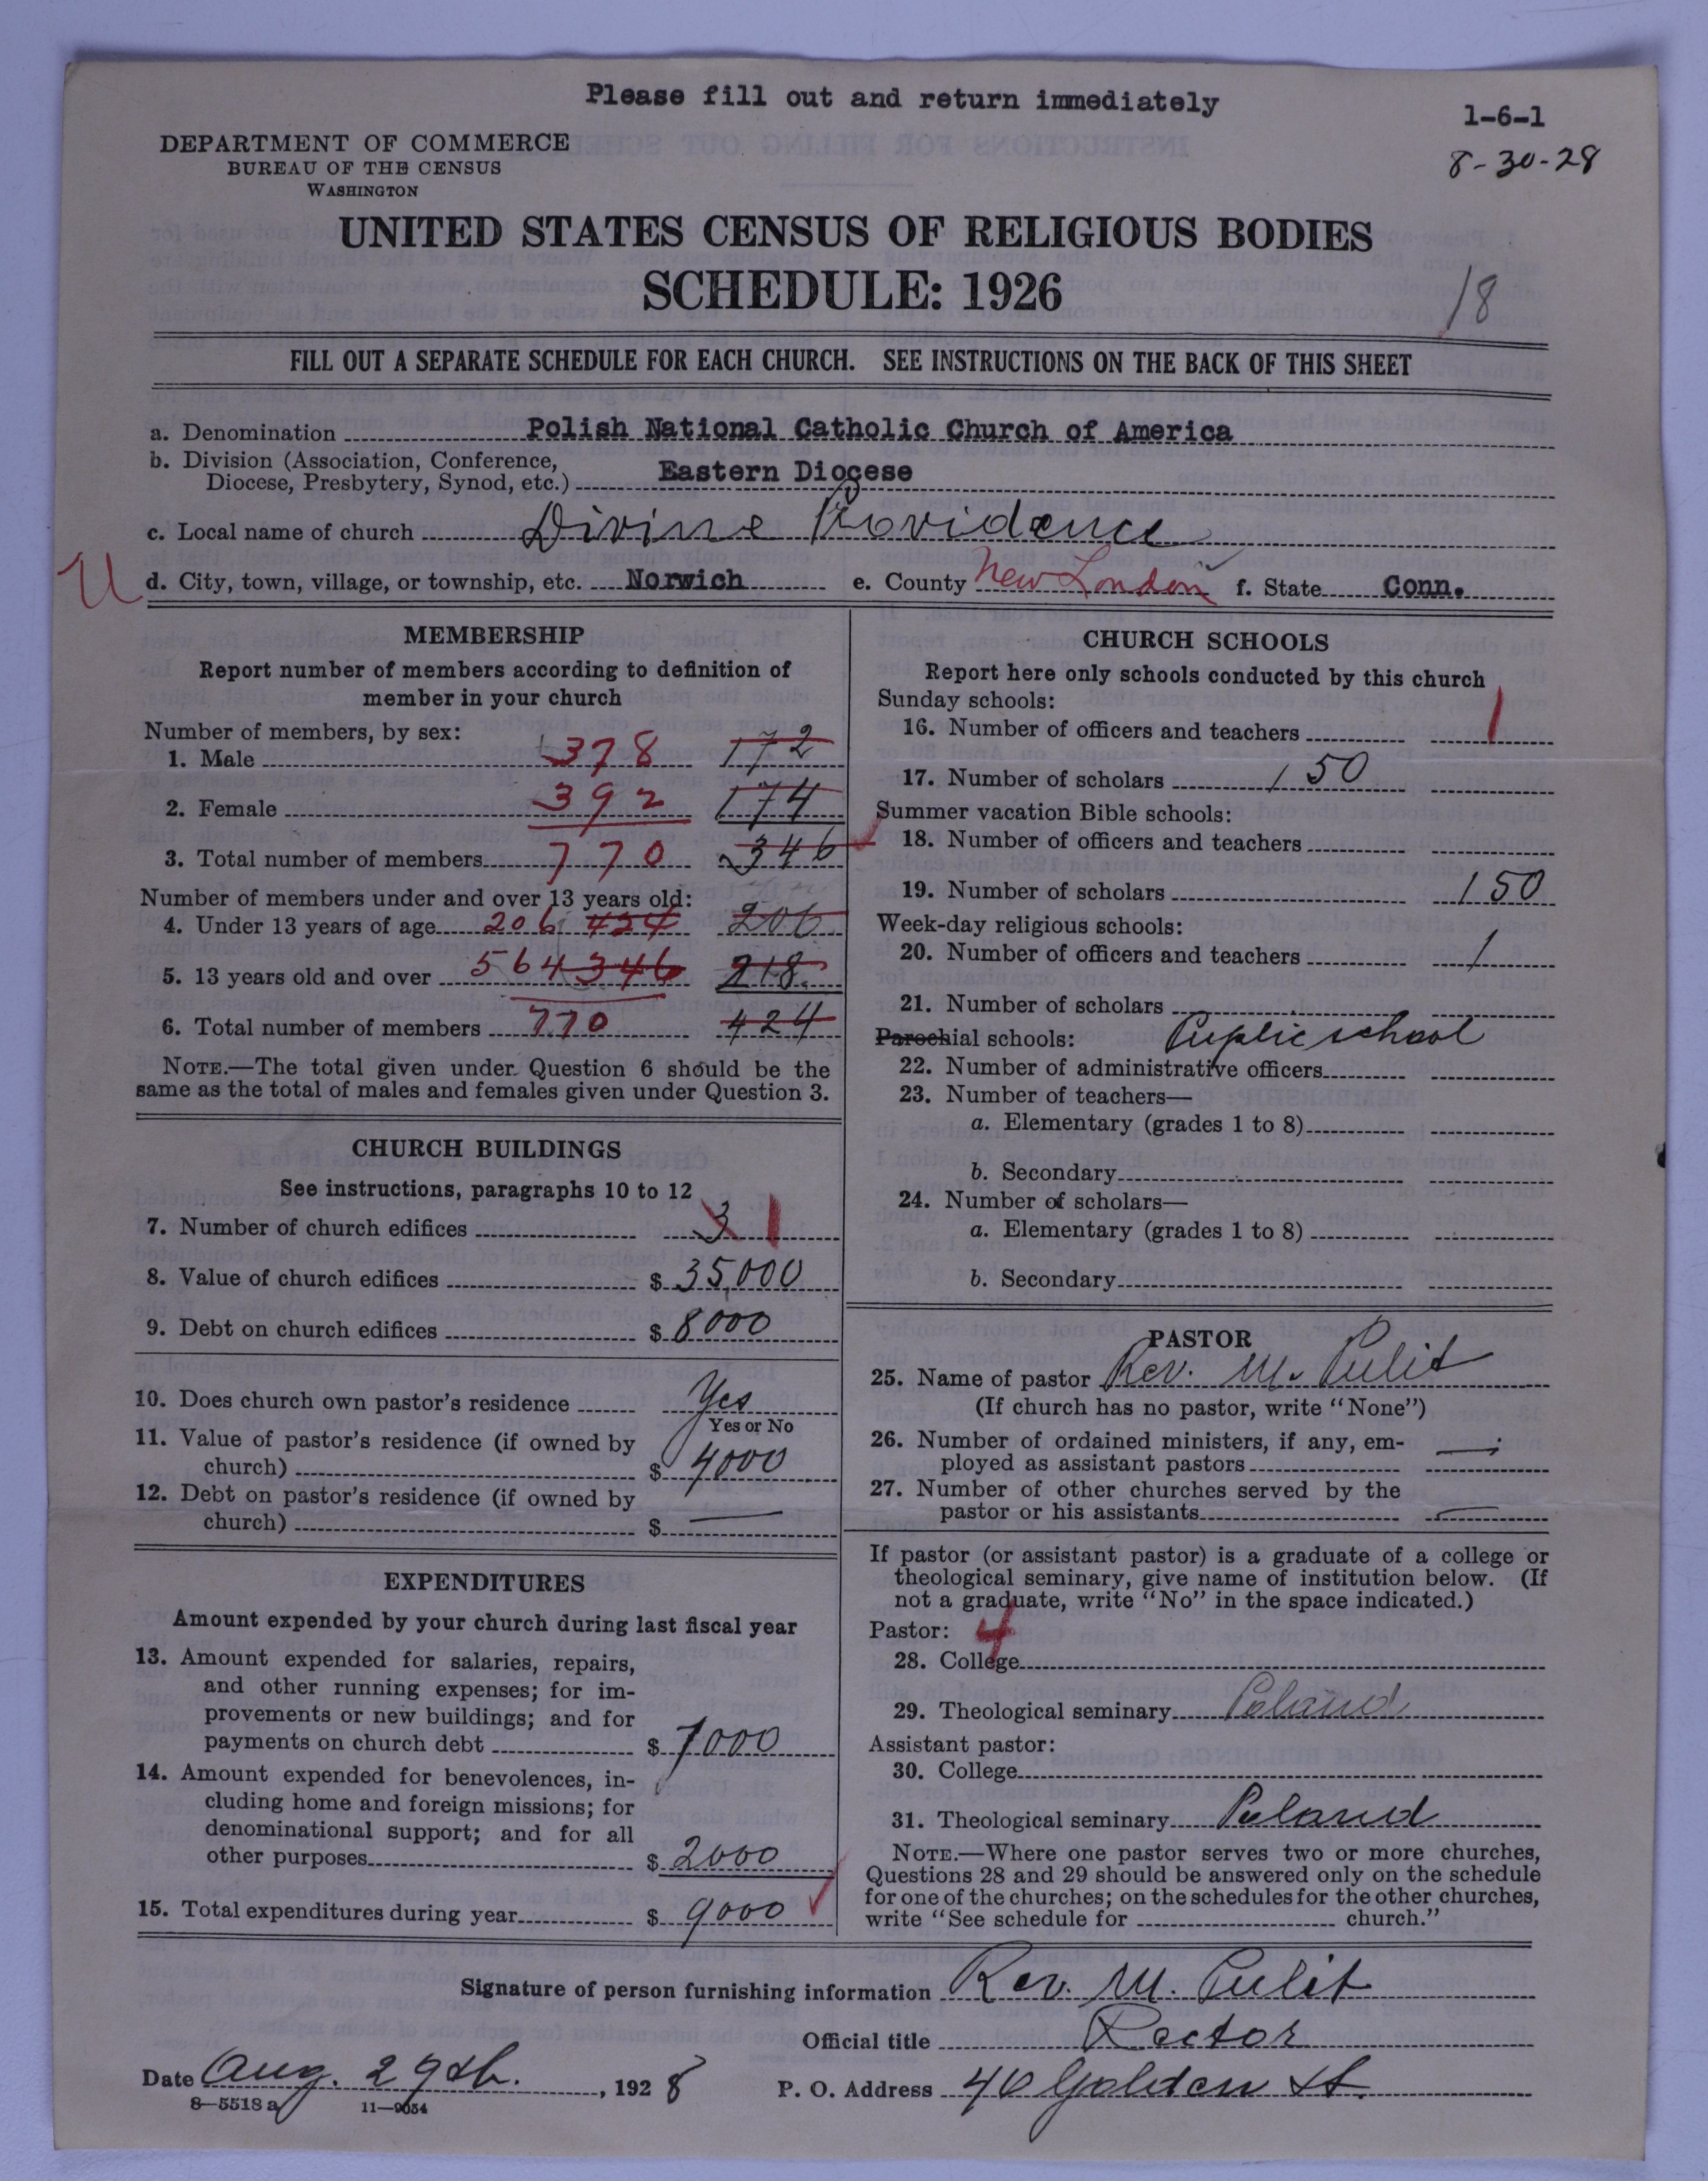 Please fill out and return immediately
1-6-1
8-30-28
DEPARTMENT OF COMMERCE
BUREAU OF THE CENSUS
WASHINGTON
UNITED STATES CENSUS OF RELIGIOUS BODIES
SCHEDULE: 1926
18
FILL OUT A SEPARATE SCHEDULE FOR EACH CHURCH. SEE INSTRUCTIONS ON THE BACK OF THIS SHEET
a. Denomination Polish National Catholic Church of America
b. Division (Association, Conference,
Diocese, Presbytery, Synod, etc.) Eastern Diocese
c. Local name of church Divine Providence
U d. City, town, village, or township, etc. Norwich e. County New London f. State Conn.
MEMBERSHIP
Report number of members according to definition of
member in your church
Number of members, by sex:
1. Male 378 172
2. Female 392 174
3. Total number of members 770 346
Number of members under and over 13 years old:
4. Under 13 years of age 206 424 206
5. 13 years old and over 564 346 218
6. Total number of members 770 424
NOTE.—The total given under Question 6 should be the
same as the total of males and females given under Question 3.
CHURCH BUILDINGS
See instructions, paragraphs 10 to 12
7. Number of church edifices 3 1
8. Value of church edifices $ 35,000
9. Debt on church edifices $ 8000
10. Does church own pastor's residence Yes
Yes or No
11. Value of pastor's residence (if owned by
church) $ 4000
12. Debt on pastor's residence (if owned by
church) $ —
EXPENDITURES
Amount expended by your church during last fiscal year
13. Amount expended for salaries, repairs,
and other running expenses; for im-
provements or new buildings; and for
payments on church debt $ 7000
14. Amount expended for benevolences, in-
cluding home and foreign missions; for
denominational support; and for all
other purposes $ 2000
15. Total expenditures during year $ 9000
CHURCH SCHOOLS
Report here only schools conducted by this church
Sunday schools:
16. Number of officers and teachers 1
17. Number of scholars 150
Summer vacation Bible schools:
18. Number of officers and teachers
19. Number of scholars 150
Week-day religious schools:
20. Number of officers and teachers 1
21. Number of scholars
Parochial schools: Puplic school
22. Number of administrative officers
23. Number of teachers—
a. Elementary (grades 1 to 8)
b. Secondary
24. Number of scholars—
a. Elementary (grades 1 to 8)
b. Secondary
PASTOR
25. Name of pastor Rev. M. Pulit
(If church has no pastor, write "None")
26. Number of ordained ministers, if any, em-
ployed as assistant pastors —
27. Number of other churches served by the
pastor or his assistants —
If pastor (or assistant pastor) is a graduate of a college or
theological seminary, give name of institution below. (If
not a graduate, write "No" in the space indicated.)
Pastor: 4
28. College
29. Theological seminary Poland
Assistant pastor:
30. College
31. Theological seminary Poland
NOTE.—Where one pastor serves two or more churches,
Questions 28 and 29 should be answered only on the schedule
for one of the churches; on the schedules for the other churches,
write "See schedule for church."
Signature of person furnishing information Rev. M. Pulit
Official title Rector
Date Aug. 29th. , 1928 P. O. Address 40 Golden St.
8—5518 a 11—9054